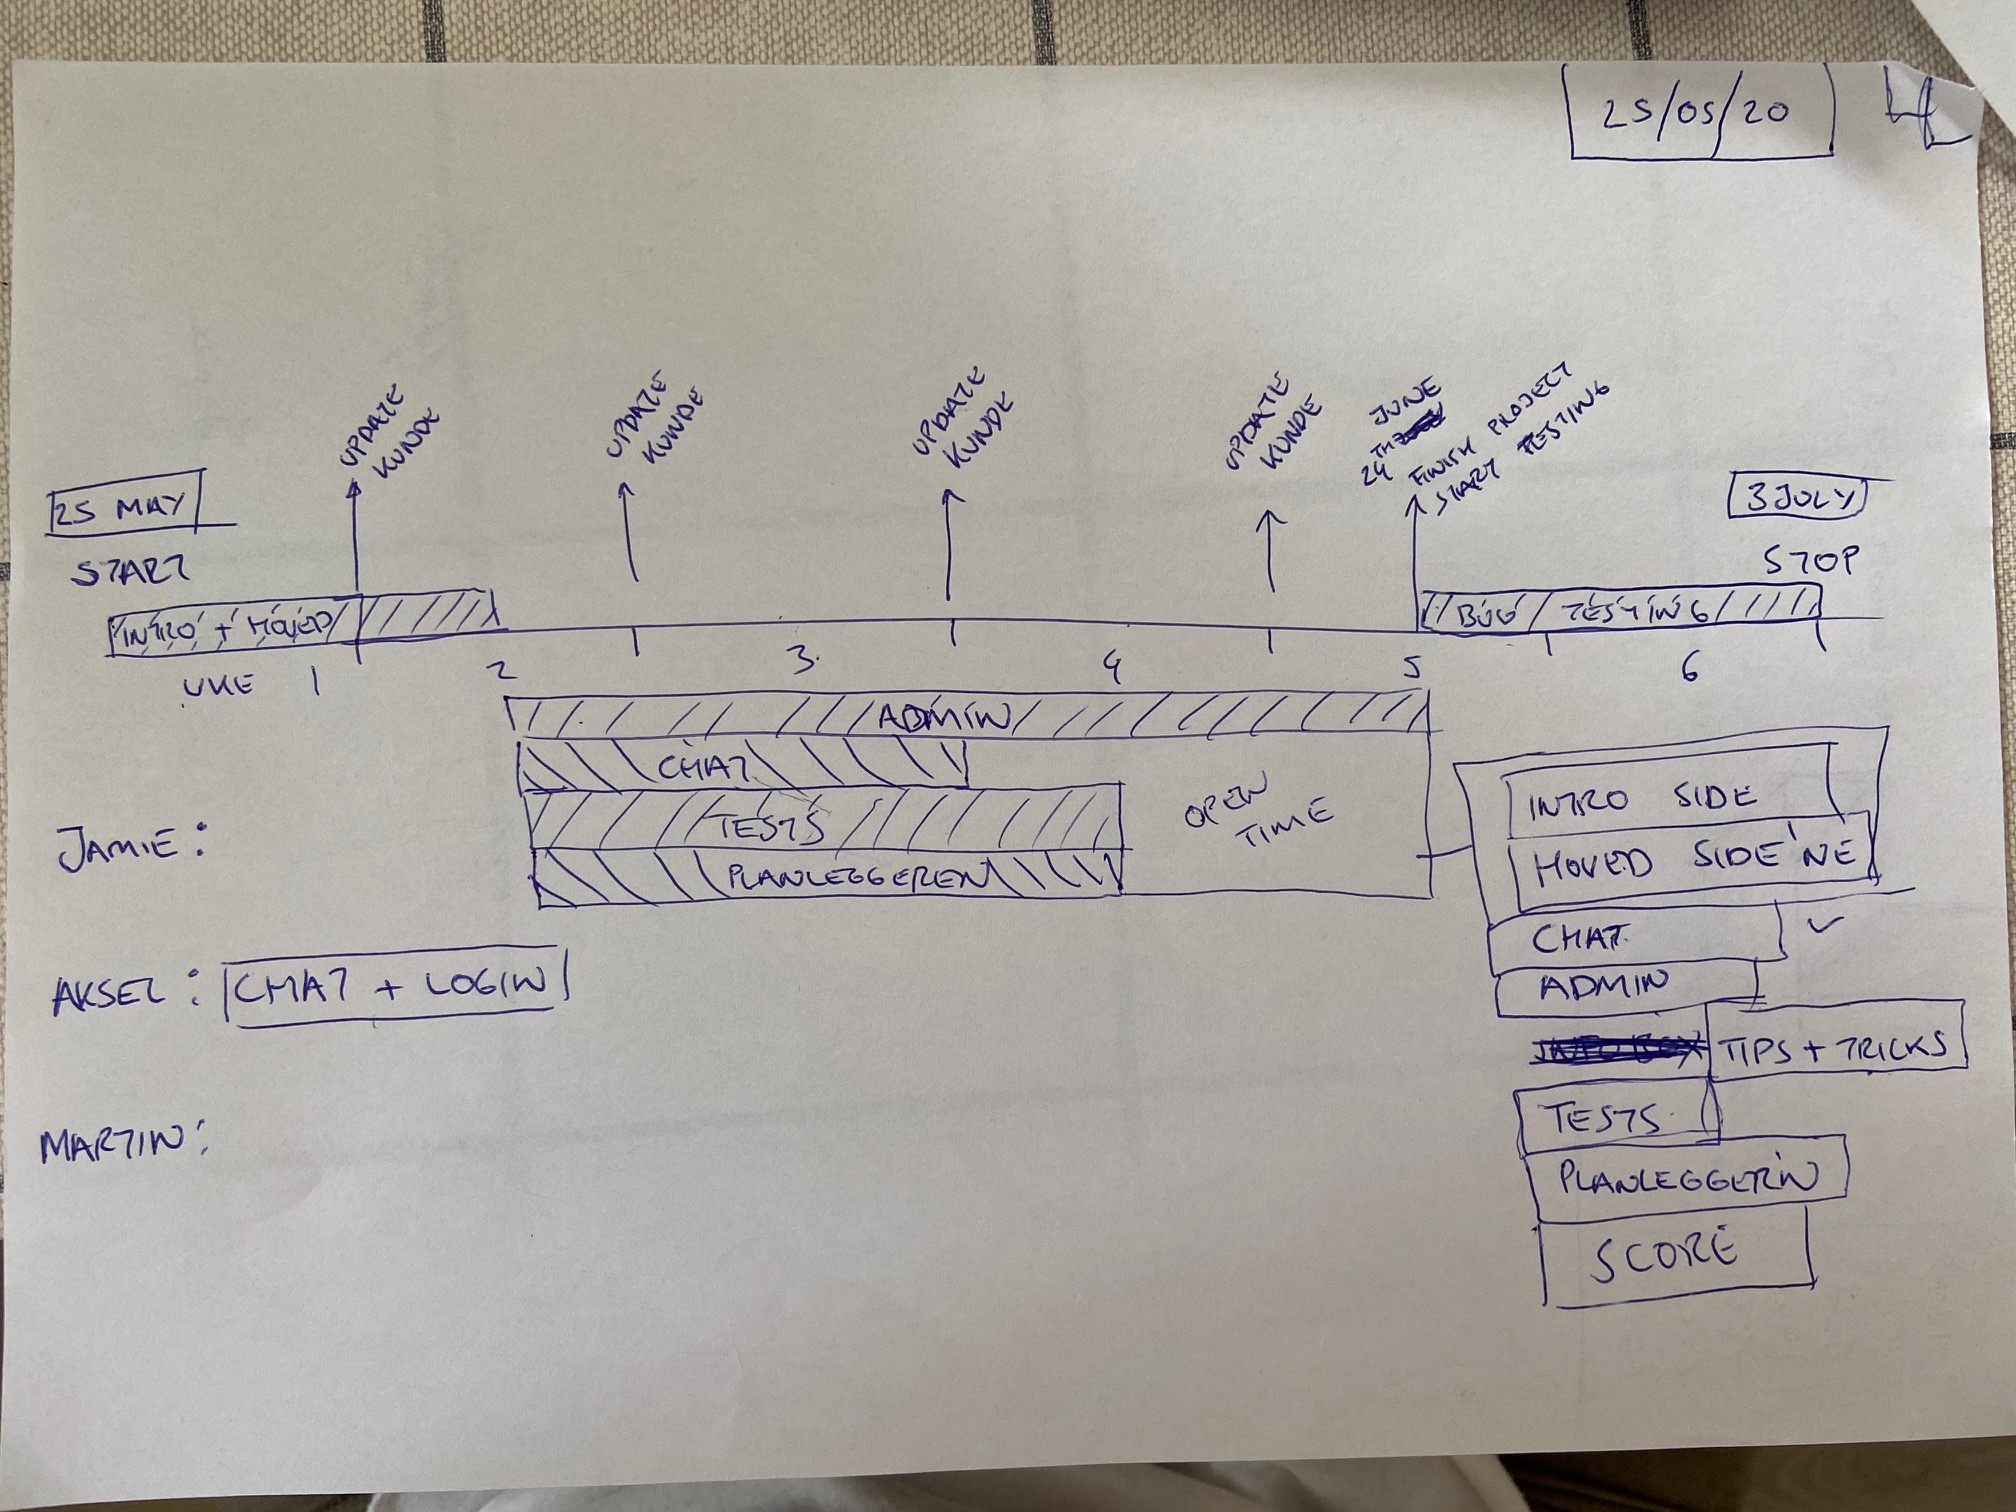 25/05/20
UPDATE
KUNDE
UPDATE
KUNDE
UPDATE
KUNDE
UPDATE
KUNDE
24 TH JUNE
FINISH PROJECT
START TESTING
25 MAY
START
3 JULY
STOP
INTRO + HOVED
BUG TESTING
UKE 1 2 3 4 5 6
ADMIN
CHAT
TESTS
PLANLEGGEREN
OPEN
TIME
JAMIE:
AKSEL: CHAT + LOGIN
MARTIN:
INTRO SIDE
HOVED SIDE'NE
CHAT
ADMIN
TIPS + TRICKS
TESTS
PLANLEGGERIN
SCORE